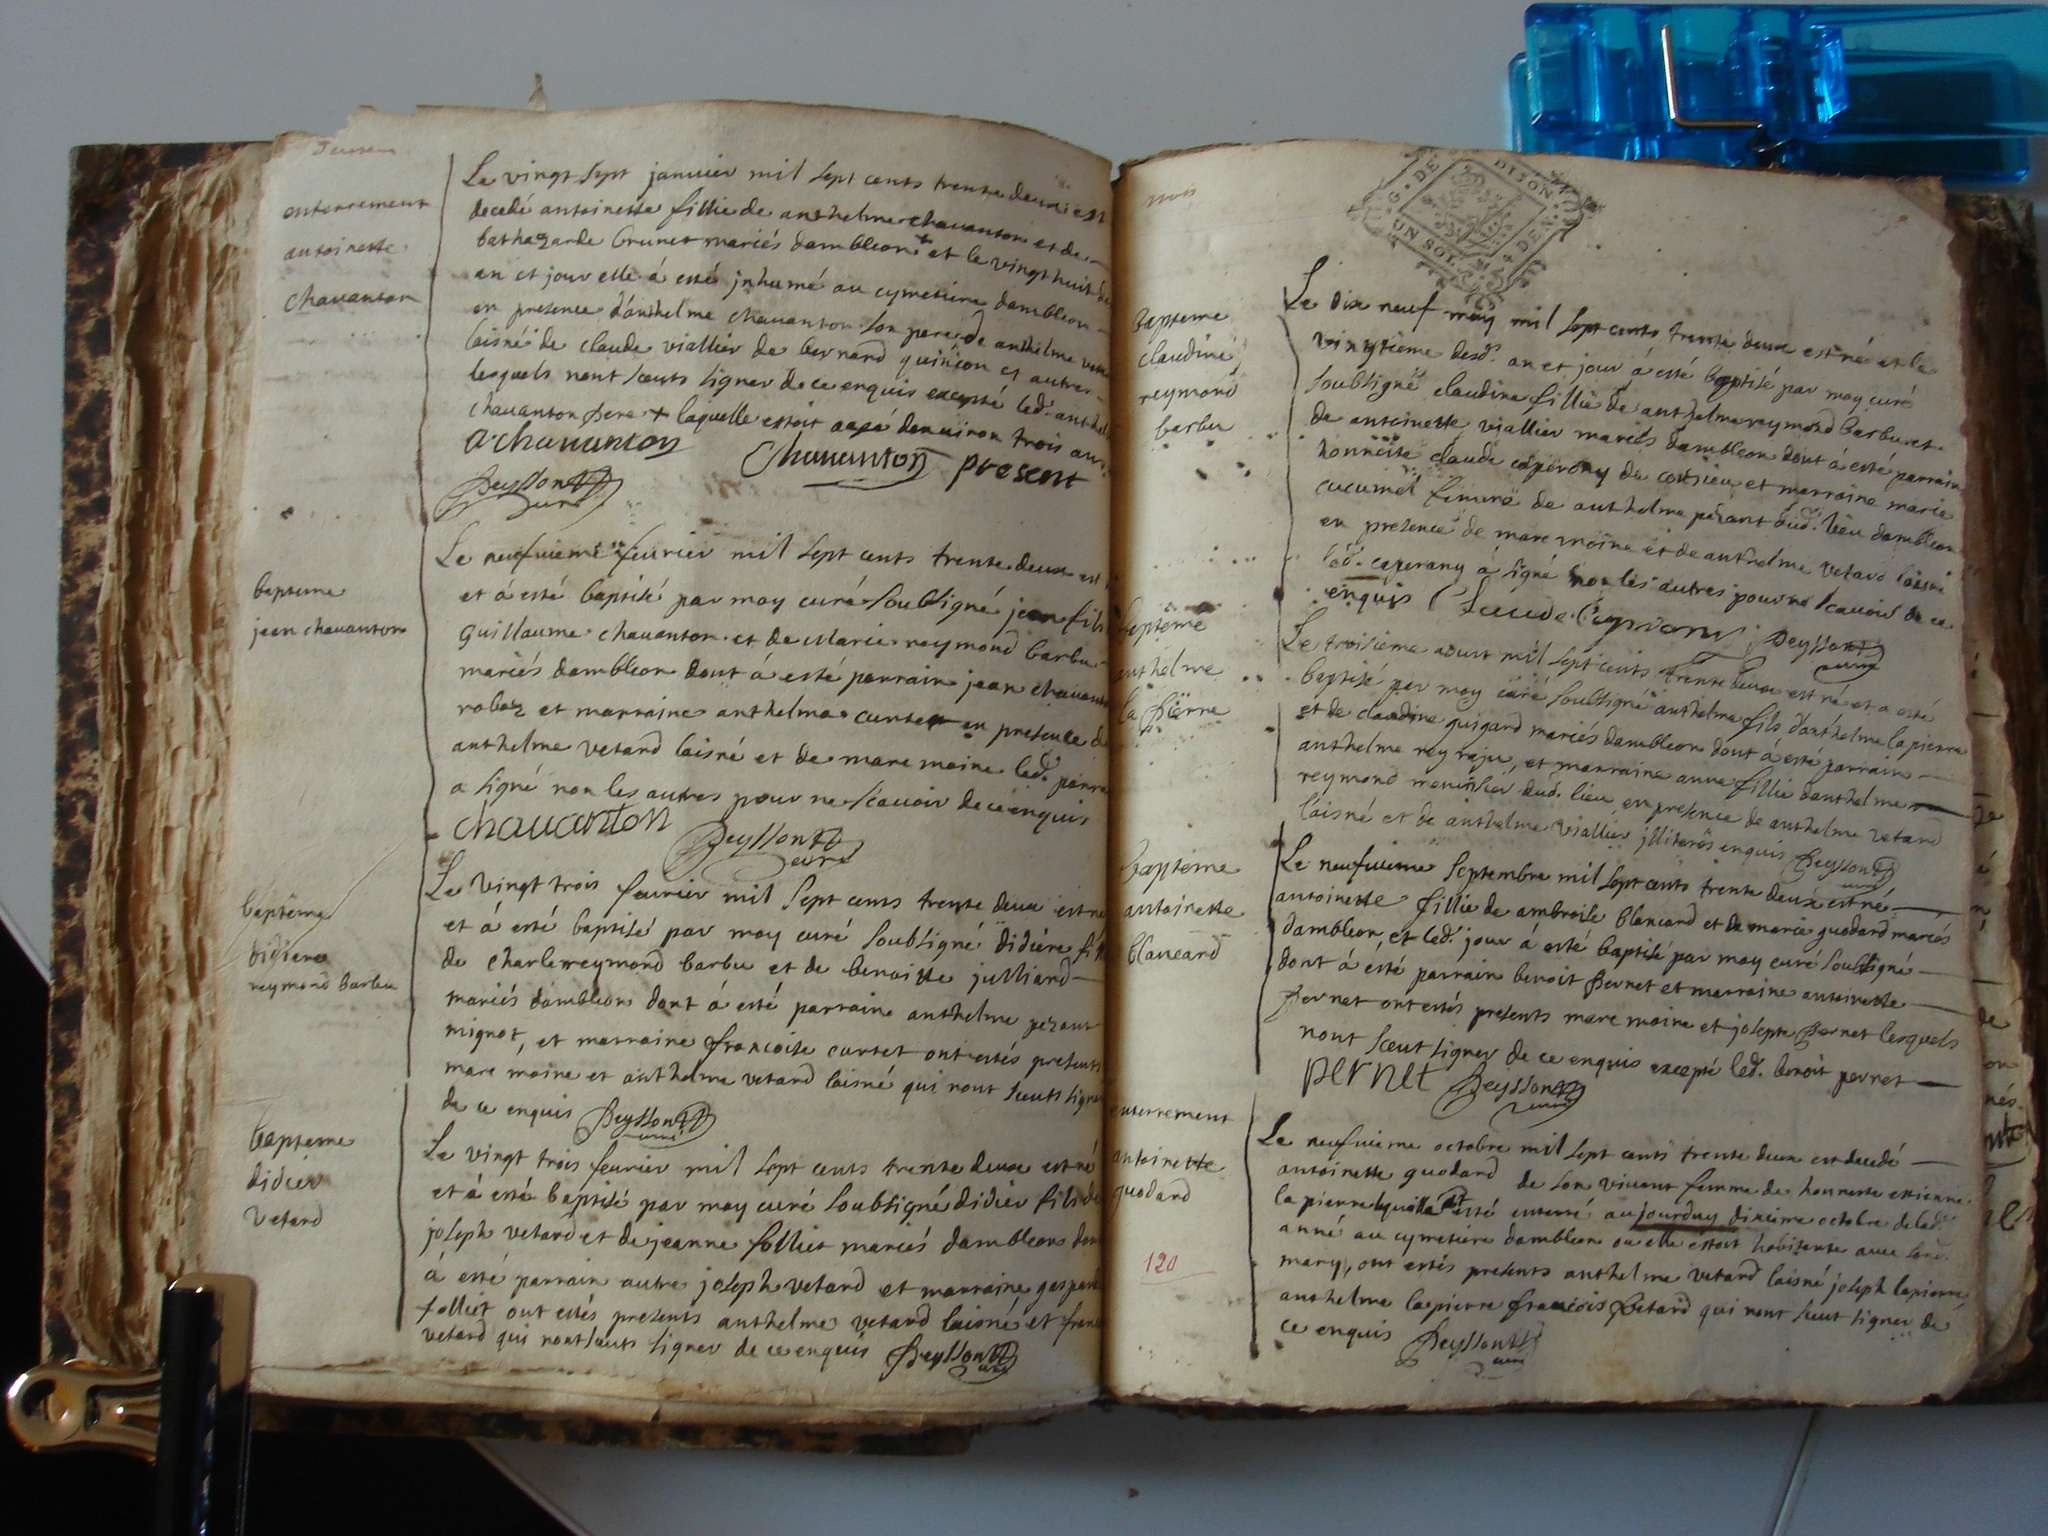 enterrement
antoinette
chauanton
Le vingt sept januier mil sept cents trente deux est
decedé antoinette fillie de anthelme chauanton et de
bathazarde brunet mariés dambleon + et le vingt huit du
an et jour elle á esté jnhumé au cymetiere dambleon
en presence d'anthelme chauanton son pere de anthelme
laisné de claude viallier de bernard quinson et autres
lesquels nont sceuts signer de ce enquis excepté led. anthel
chauanton pere + laquelle estoit aagé denuiron trois ans
a chauanton chauanton present
Deysson curé
bapteme
jean chauanton
Le neufuieme feurier mil sept cents trente deux est
et á esté baptisé par moy curé soubsigné jean fils
guillaume chauanton et de marie reymond barbu
mariés dambleon dont á esté parrain jean chauant
robaz et marraine anthelme curtet en presence de
anthelme vetard laisné et de marc moine led. parra
a signé non les autres pour ne scauoir de ce enquis
chauanton Deysson curé
bapteme
didiere
reymond barbu
Le vingt trois feurier mil sept cents trente deux est né
et á esté baptisé par moy curé soubsigné didiére fill
de charle reymond barbu et de benoitte julliard
mariés dambleon dont á esté parrain anthelme pezant
mignot, et marraine francoise curtet ont estés presents
marc moine et anthelme vetard laisné qui nont sceuts signe
de ce enquis Deysson curé
bapteme
didier
vetard
Le vingt trois feurier mil sept cents trente deux est né
et á esté baptisé par moy curé soubsigné didier fils de
joseph vetard et de jeanne folliet mariés dambleon don
á esté parrain autre joseph vetard et marraine gaspard
folliet ont estés presents anthelme vetard laisné et fran
vetard qui nont sceuts signer de ce enquis Deysson curé
G. DE DIJON
UN SOL 4 DEN.
bapteme
claudine
reymond
barbu
Le dix neuf may mil sept cents trente deux est né et le
vingtiéme desd. an et jour á esté baptisé par moy curé
soubsigné claudine fillie de anthelme reymond barbu et
de antoinette viallier mariés dambleon dont á esté parrain
honneste claude caperony de consieu et marraine marie
cucumel femme de anthelme pezant dud. lieu dambleon
en presence de marc moine et de anthelme vetard laisné
led. caperany á signé non les autres pour ne scauoir de ce
enquis Deysson curé
bapteme
anthelme
la pierre
Le troisieme aoust mil sept cents trente deux est né et a esté
baptisé par moy curé soubsigné anthelme fils d'anthelme la pierre
et de claudine guigard mariés dambleon dont á esté parrain
anthelme rey raju, et marraine anne fillie d'anthelme
reymond menuisier dud. lieu en presence de anthelme vetard
laisné et de anthelme viallier jlliterés enquis Deysson curé
bapteme
antoinette
blancard
Le neufuieme septembre mil sept cents trente deux est né
antoinette fillie de ambroise blancard et de marie guodard mariés
dambleon, et led. jour á esté baptisé par moy curé soubsigné
dont á esté parrain benoit pernet et marraine antoinette
pernet ont estés presents marc moine et joseph pernet lesquels
nont sceut signer de ce enquis excepté led. benoit pernet
pernet Deysson curé
enterrement
antoinette
guodard
120
Le neufuieme octobre mil sept cents trente deux est decedé
antoinette guodard de son viuant femme de honneste estienne
la pierre laquelle á esté enterré aujourduy dixieme octobre de lad.
anné au cymetiere dambleon ou elle estoit habitante auec sond.
mary, ont estés presents anthelme vetard laisné joseph lapierre
anthelme lapierre francois vetard qui nont sceut signer de
ce enquis Deysson curé